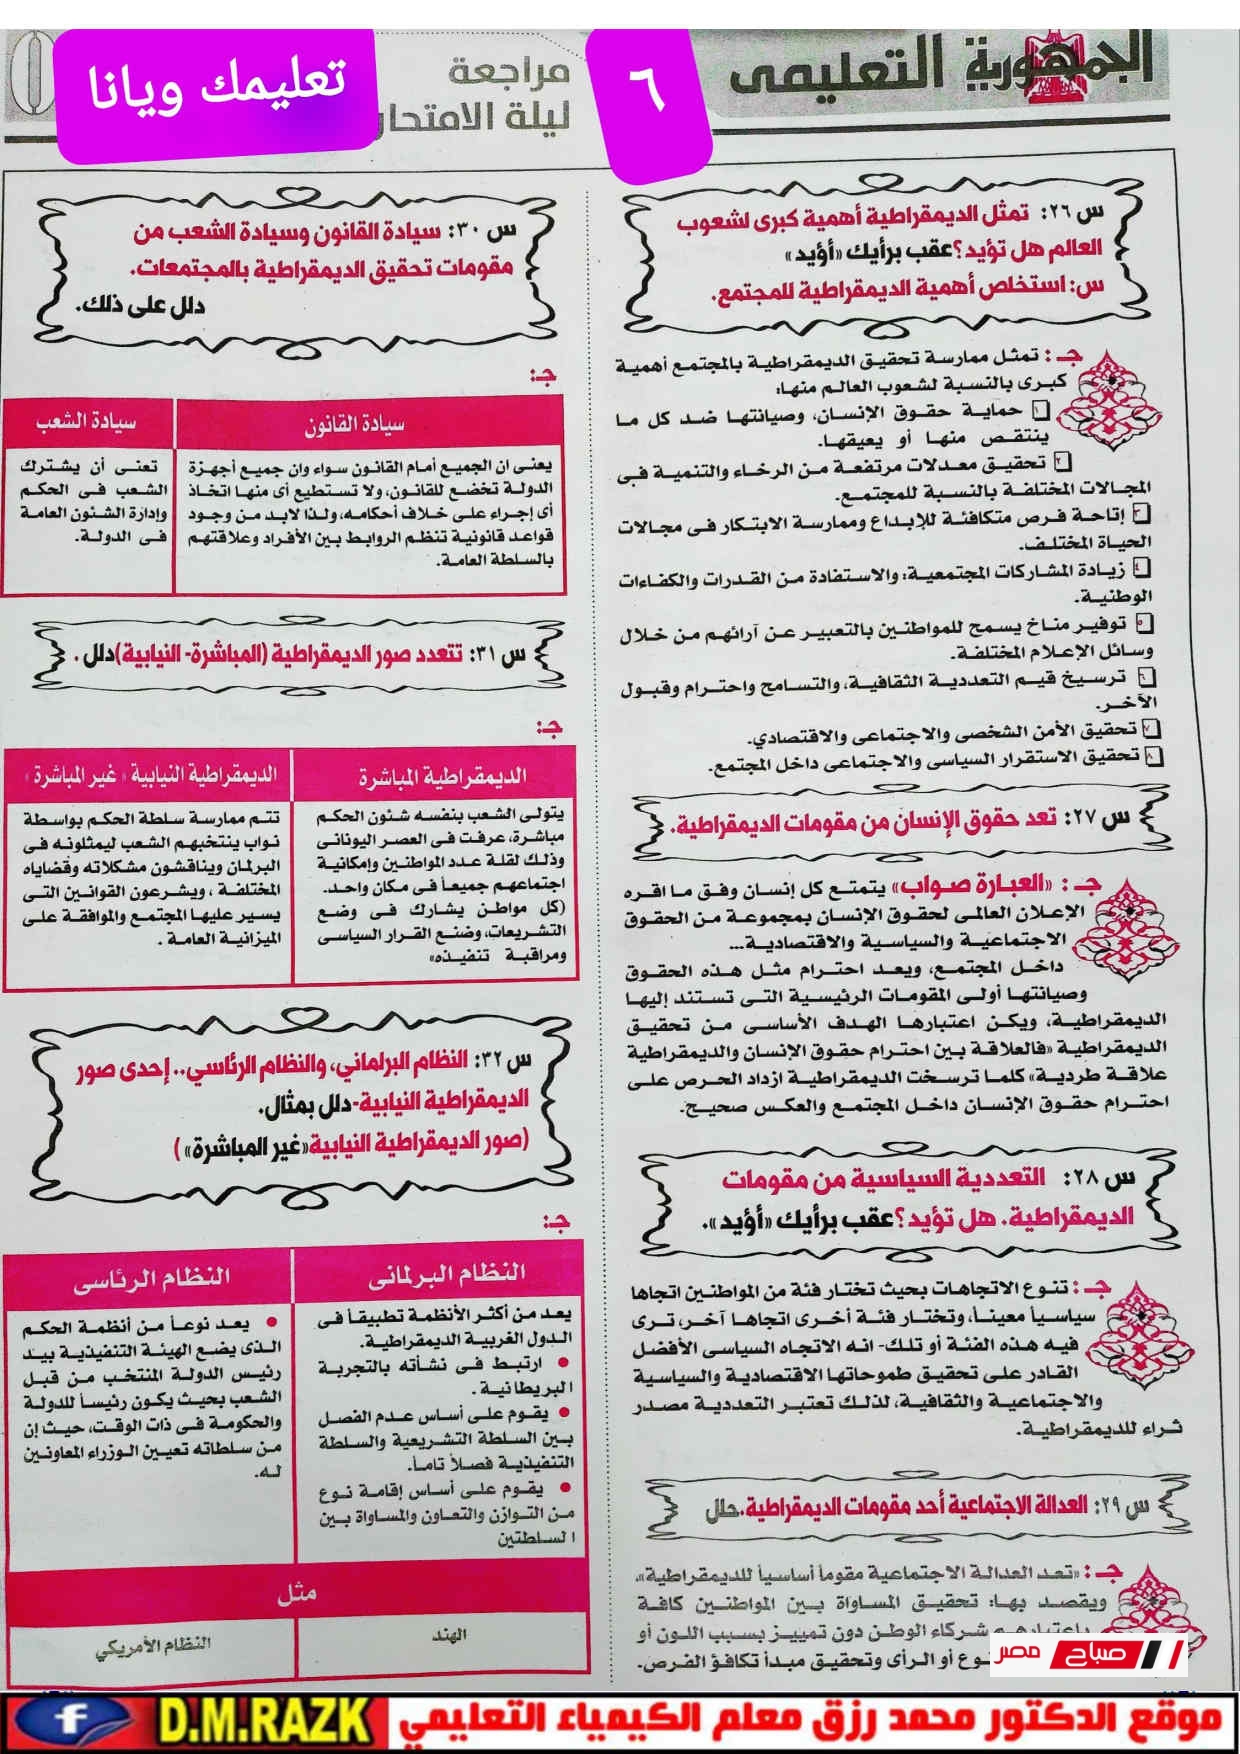 الجمهورية التعليمى
٦
مراجعة
ليلة الامتحان
تعليمك ويانا
س ٢٦: تمثل الديمقراطية أهمية كبرى لشعوب
العالم هل تؤيد؟ عقب برأيك «أؤيد»
س: استخلص أهمية الديمقراطية للمجتمع.
جـ: تمثل ممارسة تحقيق الديمقراطية بالمجتمع أهمية
كبرى بالنسبة لشعوب العالم منها:
١ حماية حقوق الإنسان، وصيانتها ضد كل ما
ينتقص منها أو يعيقها.
٢ تحقيق معدلات مرتفعة من الرخاء والتنمية فى
المجالات المختلفة بالنسبة للمجتمع.
٣ إتاحة فرص متكافئة للإبداع وممارسة الابتكار فى مجالات
الحياة المختلف.
٤ زيادة المشاركات المجتمعية: والاستفادة من القدرات والكفاءات
الوطنية.
٥ توفير مناخ يسمح للمواطنين بالتعبير عن آرائهم من خلال
وسائل الإعلام المختلفة.
٦ ترسيخ قيم التعددية الثقافية، والتسامح واحترام وقبول
الآخر.
٧ تحقيق الأمن الشخصى والاجتماعى والاقتصادي.
٨ تحقيق الاستقرار السياسى والاجتماعى داخل المجتمع.
س ٢٧: تعد حقوق الإنسان من مقومات الديمقراطية.
جـ: «العبارة صواب» يتمتع كل إنسان وفق ما اقره
الإعلان العالمى لحقوق الإنسان بمجموعة من الحقوق
الاجتماعية والسياسية والاقتصادية...
داخل المجتمع، ويعد احترام مثل هذه الحقوق
وصيانتها أولى المقومات الرئيسية التى تستند إليها
الديمقراطية، ويكن اعتبارها الهدف الأساسى من تحقيق
الديمقراطية «فالعلاقة بين احترام حقوق الإنسان والديمقراطية
علاقة طردية» كلما ترسخت الديمقراطية ازداد الحرص على
احترام حقوق الإنسان داخل المجتمع والعكس صحيح.
س ٢٨: التعددية السياسية من مقومات
الديمقراطية. هل تؤيد؟ عقب برأيك «أؤيد».
جـ: تنوع الاتجاهات بحيث تختار فئة من المواطنين اتجاها
سياسياً معيناً، وتختار فئة أخرى اتجاها آخر، ترى
فيه هذه الفئة أو تلك- انه الاتجاه السياسى الأفضل
القادر على تحقيق طموحاتها الاقتصادية والسياسية
والاجتماعية والثقافية، لذلك تعتبر التعددية مصدر
ثراء للديمقراطية.
س ٢٩: العدالة الاجتماعية أحد مقومات الديمقراطية. حلل
جـ: «تعد العدالة الاجتماعية مقوماً أساسياً للديمقراطية»،
ويقصد بها: تحقيق المساواة بين المواطنين كافة
باعتبارهم شركاء الوطن دون تمييز بسبب اللون أو
أو الرأى وتحقيق مبدأ تكافؤ الفرص.
س ٣٠: سيادة القانون وسيادة الشعب من
مقومات تحقيق الديمقراطية بالمجتمعات.
دلل على ذلك.
جـ:
سيادة القانون
يعنى ان الجميع أمام القانون سواء وان جميع أجهزة
الدولة تخضع للقانون، ولا تستطيع أى منها اتخاذ
أى إجراء على خلاف أحكامه، ولذا لابد من وجود
قواعد قانونية تنظم الروابط بين الأفراد وعلاقتهم
بالسلطة العامة.
سيادة الشعب
تعنى أن يشترك
الشعب فى الحكم
وإدارة الشئون العامة
فى الدولة.
س ٣١: تتعدد صور الديمقراطية (المباشرة- النيابية) دلل.
جـ:
الديمقراطية المباشرة
يتولى الشعب بنفسه شئون الحكم
مباشرة، عرفت فى العصر اليونانى
وذلك لقلة عدد المواطنين وإمكانية
اجتماعهم جميعاً فى مكان واحد.
(كل مواطن يشارك فى وضع
التشريعات، وصنع القرار السياسى
ومراقبة تنفيذه»
الديمقراطية النيابية «غير المباشرة»
تتم ممارسة سلطة الحكم بواسطة
نواب ينتخبهم الشعب ليمثلونه فى
البرلمان ويناقشون مشكلاته وقضاياه
المختلفة، ويشرعون القوانين التى
يسير عليها المجتمع والموافقة على
الميزانية العامة.
س ٣٢: النظام البرلماني، والنظام الرئاسي.. إحدى صور
الديمقراطية النيابية-دلل بمثال.
(صور الديمقراطية النيابية «غير المباشرة»)
جـ:
النظام البرلمانى
يعد من أكثر الأنظمة تطبيقاً فى
الدول الغربية الديمقراطية.
● ارتبط فى نشأته بالتجربة
البريطانية.
● يقوم على أساس عدم الفصل
بين السلطة التشريعية والسلطة
التنفيذية فصلاً تاماً.
● يقوم على أساس إقامة نوع
من التوازن والتعاون والمساواة بين
السلطتين
النظام الرئاسى
● يعد نوعاً من أنظمة الحكم
الذى يضع الهيئة التنفيذية بيد
رئيس الدولة المنتخب من قبل
الشعب بحيث يكون رئيساً للدولة
والحكومة فى ذات الوقت، حيث إن
من سلطاته تعيين الوزراء المعاونين
له.
مثل
الهند
النظام الأمريكي
صباح مصر
موقع الدكتور محمد رزق معلم الكيمياء التعليمي
D.M.RAZK